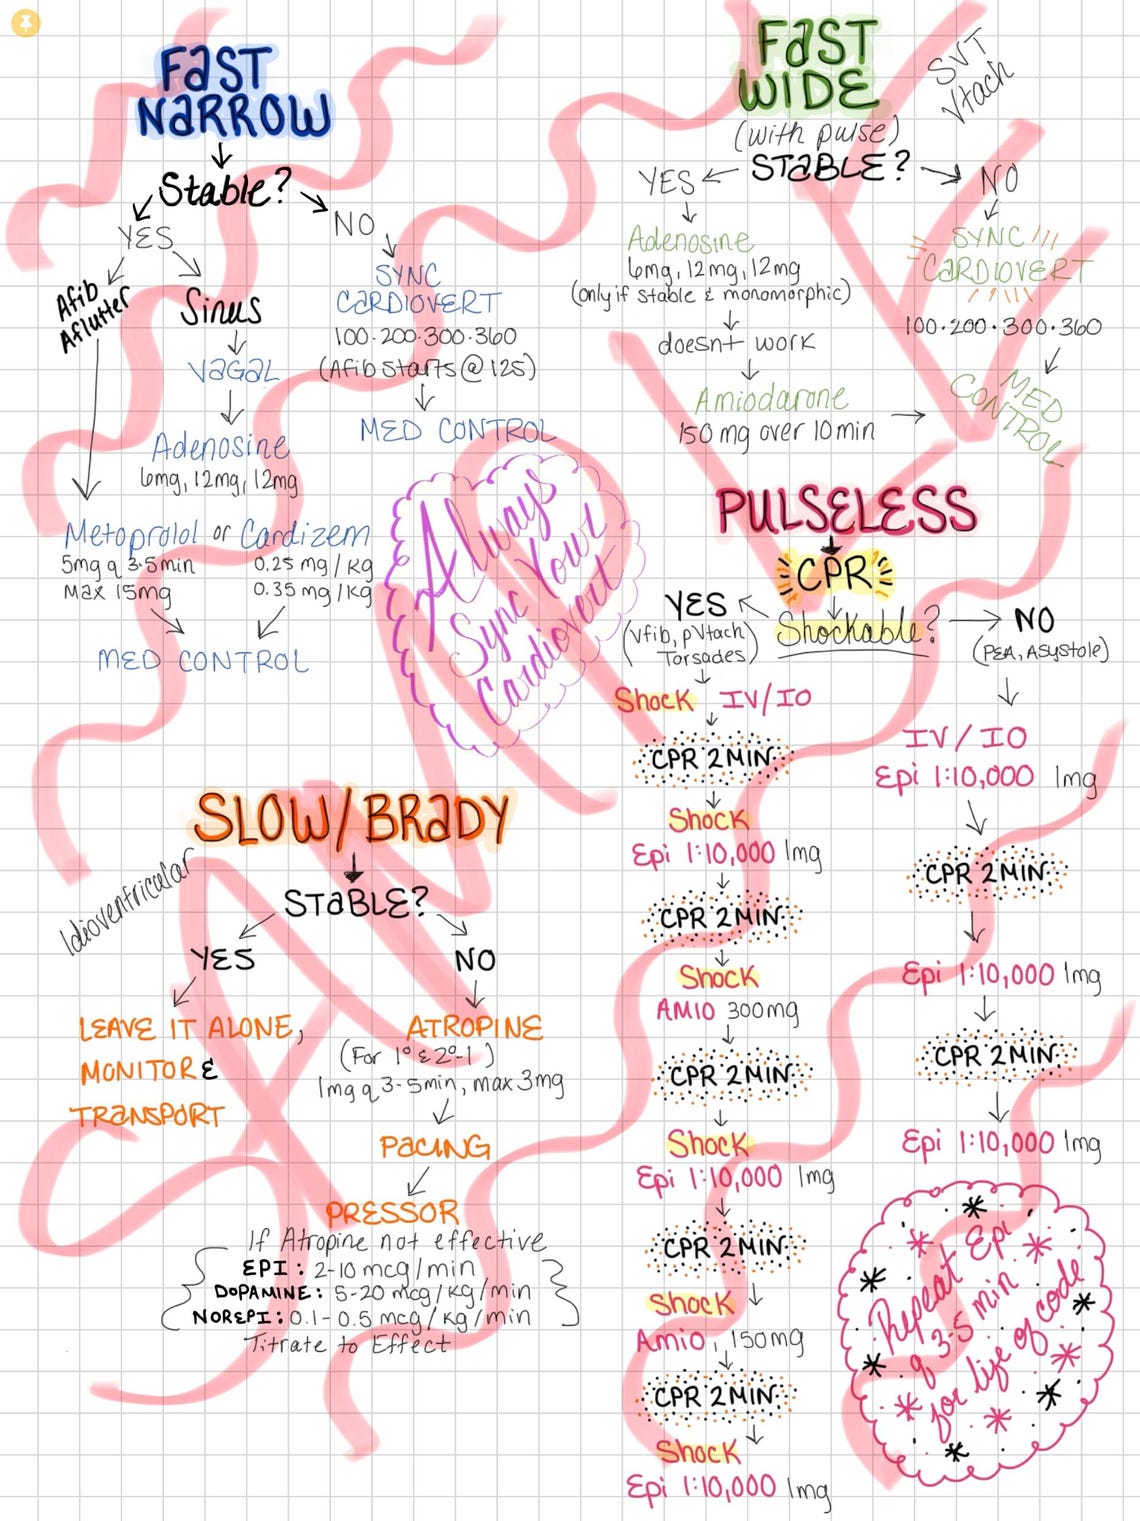 FAST
NARROW
Stable?
YES
NO
Afib
Aflutter
Sinus
VAGAL
Adenosine
6mg, 12mg, 12mg
SYNC
CARDIOVERT
100·200·300·360
(Afib starts @ 125)
MED CONTROL
Metoprolol or Cardizem
5mg q 3-5min
Max 15mg
0.25 mg/kg
0.35 mg/kg
MED CONTROL
FAST
WIDE
(with pulse)
SVT
Vtach
STABLE?
YES
NO
Adenosine
6mg, 12mg, 12mg
(only if stable & monomorphic)
doesn't work
Amiodarone
150 mg over 10min
SYNC
CARDIOVERT
100·200·300·360
MED
CONTROL
Always
Sync Your
Cardiovert
PULSELESS
CPR
Shockable?
YES
(Vfib, pVtach)
Torsades)
NO
(PEA, Asystole)
Shock IV/IO
CPR 2MIN
Shock
Epi 1:10,000 1mg
CPR 2MIN
Shock
AMIO 300mg
CPR 2MIN
Shock
Epi 1:10,000 1mg
CPR 2MIN
Shock
Amio, 150mg
CPR 2MIN
Shock
Epi 1:10,000 1mg
IV/IO
Epi 1:10,000 1mg
CPR 2MIN
Epi 1:10,000 1mg
CPR 2MIN
Epi 1:10,000 1mg
Repeat Epi
q 3-5 min
for life of code
SLOW/BRADY
Idioventricular
STABLE?
YES
NO
LEAVE IT ALONE,
MONITOR &
TRANSPORT
ATROPINE
(For 1° & 2°-1)
1mg q 3-5min, max 3mg
PACING
PRESSOR
If Atropine not effective
EPI: 2-10 mcg/min
DOPAMINE: 5-20 mcg/kg/min
NOREPI: 0.1-0.5 mcg/kg/min
Titrate to Effect